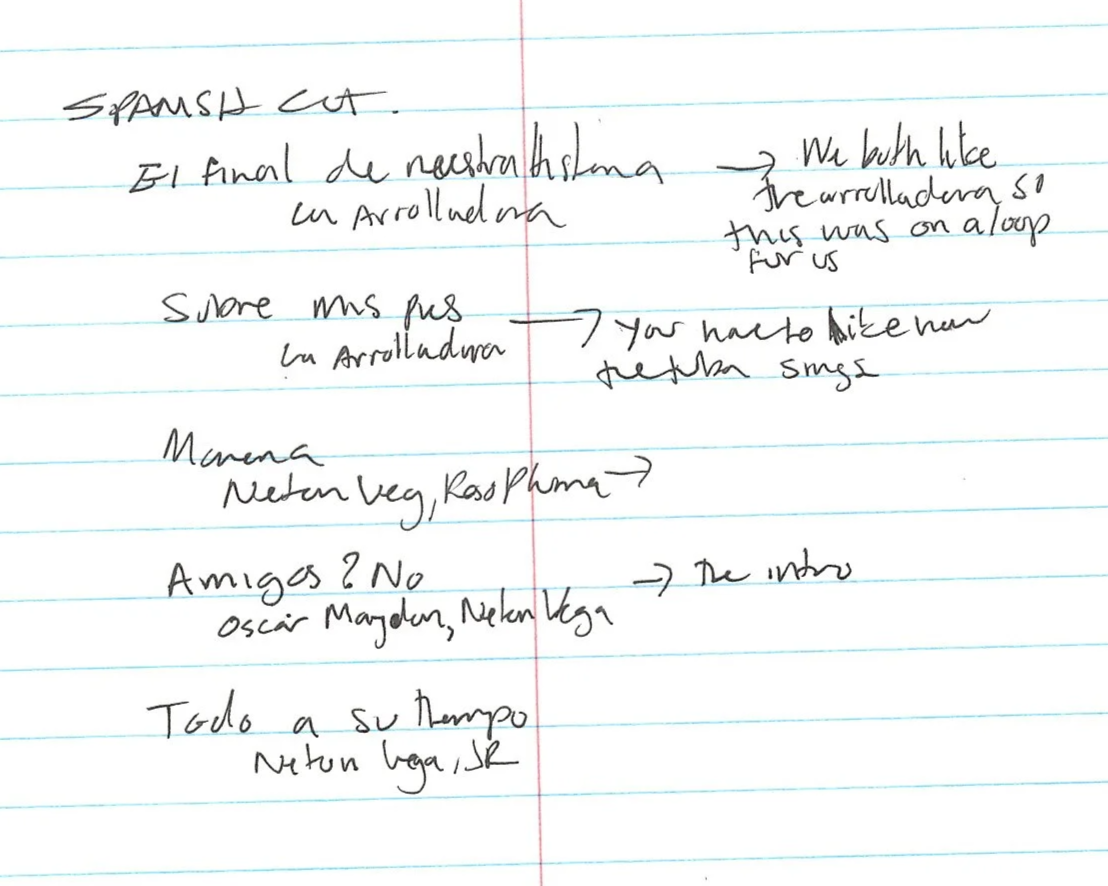 SPANISH CUT.
El final de nuestra historia → We both like
La Arrolladora the arrolladora so
this was on a loop
for us
Sobre mis pies → You have to like how
La Arrolladora the tuba sings
Morena
Neton Veg, Peso Pluma →
Amigos? No → The intro
Oscar Maydon, Neton Vega
Todo a su tiempo
Neton Vega, JR